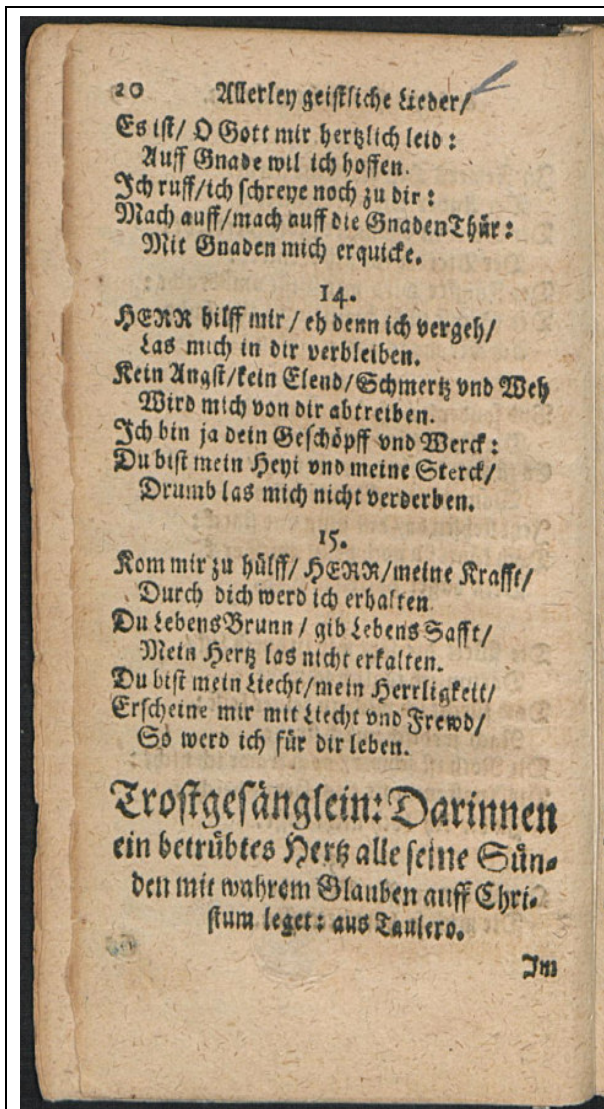 20 Allerley geistliche Lieder/
Es ist/ O Gott mir hertzlich leid:
Auff Gnade wil ich hoffen.
Ich ruff/ich schreye noch zu dir:
Mach auff/mach auff die GnadenThür:
Mit Gnaden mich erquicke.
14.
HERR hilff mir/ eh denn ich vergeh/
Las mich in dir verbleiben.
Kein Angst/kein Elend/Schmertz vnd Weh
Wird mich von dir abtreiben.
Ich bin ja dein Geschöpff vnd Werck:
Du bist mein Heyl vnd meine Sterck/
Drumb las mich nicht verderben.
15.
Kom mir zu hülff/ HERR/meine Krafft/
Durch dich werd ich erhalten
Du LebensBrunn/ gib LebensSafft/
Mein Hertz las nicht erkalten.
Du bist mein Liecht/mein Herrligkeit/
Erscheine mir mit Liecht vnd Frewd/
So werd ich für dir leben.
Trostgesänglein: Darinnen
ein betrübtes Hertz alle seine Sün-
den mit wahrem Glauben auff Chri-
stum leget: aus Taulero.
Im